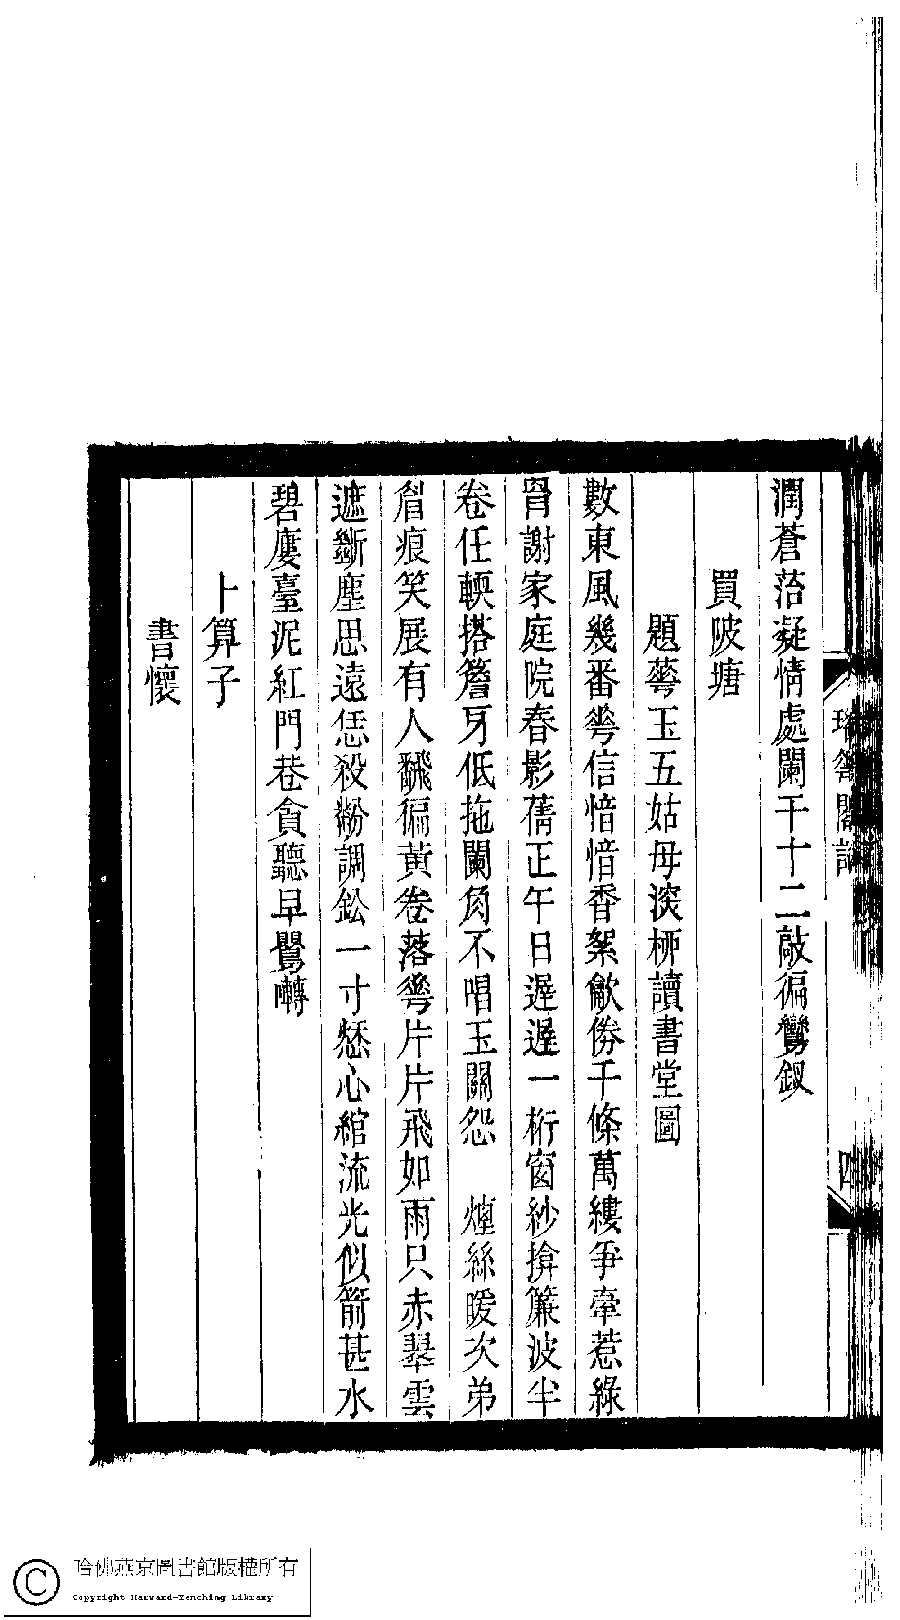 潤蒼苔凝情處闌干十二敲徧鸞釵
買陂塘
題蕚玉五姑母淡栁讀書堂圖
數東風幾番芳信愔愔香絮飲傍千條萬縷爭牽惹綠
肙謝家庭院春影蒨正午日遲遲一桁窗紗揜簾波半
卷任輭搭簷牙低拖闌角不唱玉關怨　煙絲暖次弟
眉痕笑展有人飜徧黃卷落蕚片片飛如雨只赤翠雲
遮斷塵思遠恁殺粉調鉛一寸愁心綰流光似箭甚水
碧廔臺泥紅門巷貪聽早鸎囀
卜算子
書懷
閣詞
四
哈佛燕京圖書館版權所有
Copyright Harvard-Yenching Library